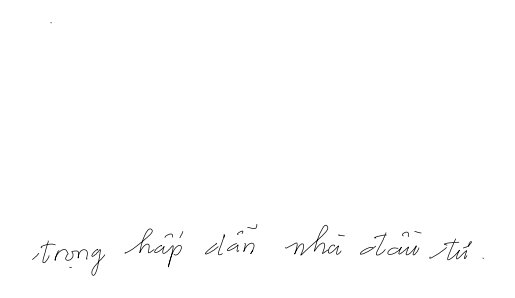 trọng hấp dẫn nhà đầu tư.